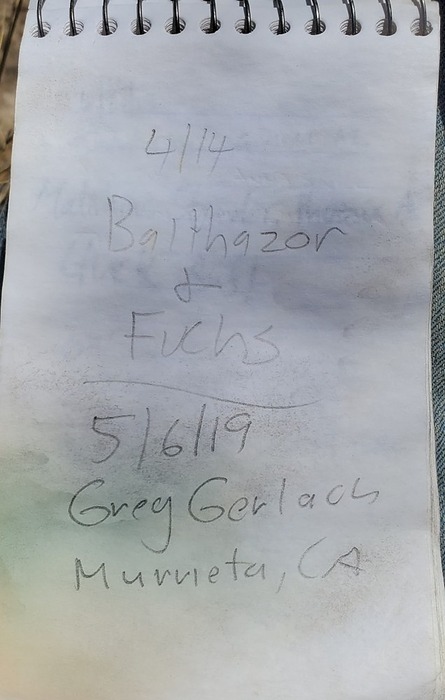 4/14
Balthazor
&
Fuchs
5/6/19
Greg Gerlach
Murrieta, CA